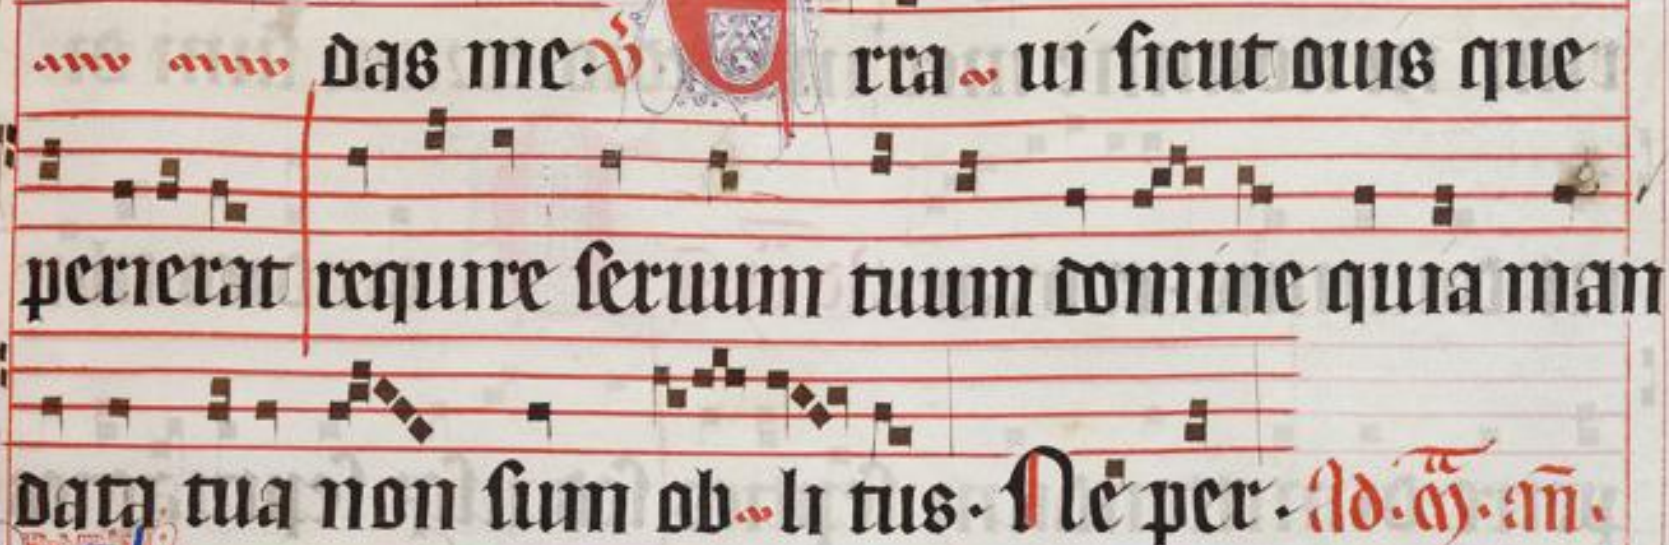 das me ℣ Erra ui sicut ouis que
perierat require seruum tuum domine quia man
data tua non sum ob li tus. Ne per. Ad. m̄. an̄.